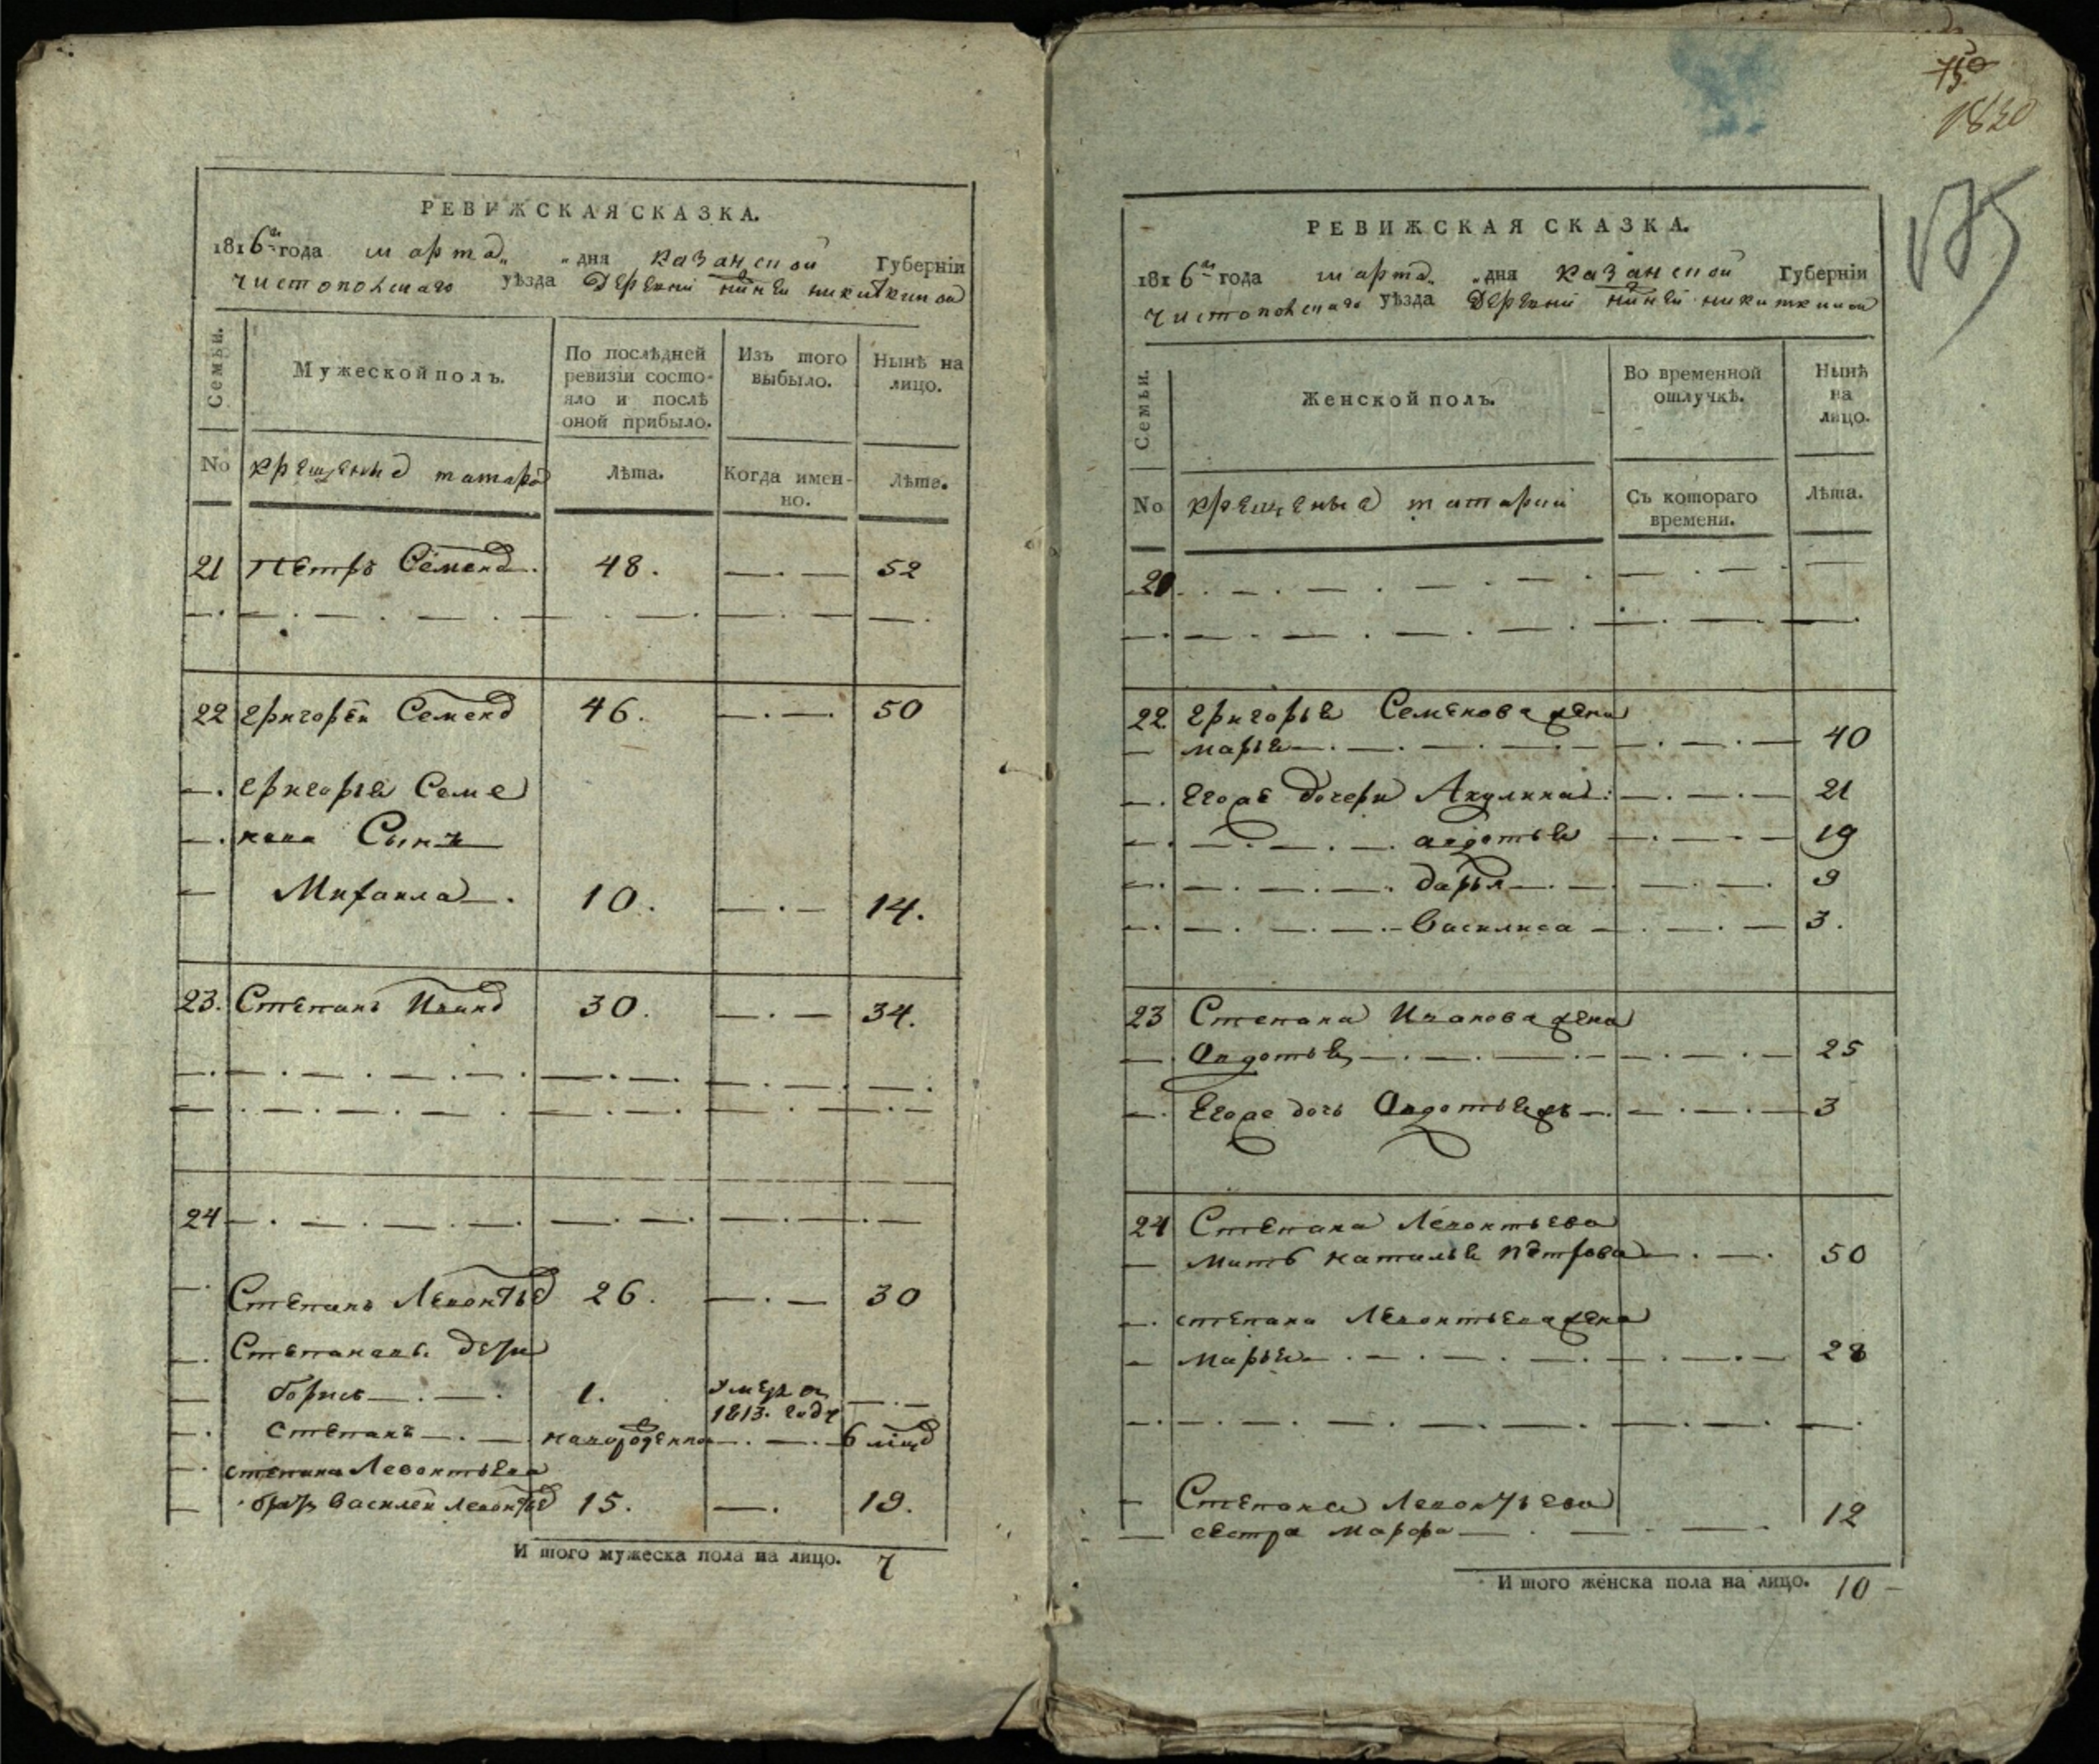 РЕВИЖСКАЯ СКАЗКА.
1816го года марта „ „ дня казанской Губерніи
чистопольскаго уѣзда Деревни никиткиной
Семьи.
Мужеской полъ.
По послѣдней
ревизіи состо-
яло и послѣ
оной прибыло.
Изъ того
выбыло.
Нынѣ на
лицо.
No
крещеные татара
Лѣта.
Когда имен-
но.
Лѣта.
21 Петръ Семенов. 48. 52
22 Григорей Семенов 46. 50
Григорья Семе
нова Сынъ
Михаила 10. 14.
23. Степанъ Иванов 30. 34.
24
Степанъ Левонтьев 26. 30
Степановы дети
борисъ 1. Умеръ
1813. году
степанъ новорожденной 6
степана Левонтьева
братъ Василей Левонтьев 15. 19.
И того мужеска пола на лицо. 7
75
1820
185
РЕВИЖСКАЯ СКАЗКА.
1816го года марта „ „ дня казанской Губерніи
чистопольскаго уѣзда Деревни никиткиной
Семьи.
Женской полъ.
Во временной
отлучкѣ.
Нынѣ
на
лицо.
No
крещеные
Съ котораго
времени.
Лѣта.
22 Григорья Семенова жена
марья 40
Егоже дочери Акулина 21
авдотья 19
дарья 9
Василиса 3.
23 Степана Иванова жена
Авдотья 25
Егоже дочь Авдотья жъ 3
24 Степана Левонтьева
мать наталья петрова 50
степана Левонтьева жена
марья 28
Степана Левонтьева
сестра марфа 12
И того женска пола на лицо. 10